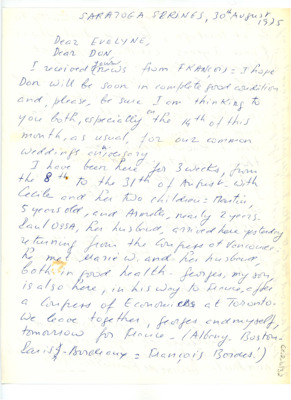 SARATOGA SPRINGS, 30th August
1975
Dear EVELYNE,
Dear DON,
I received your news from FRANÇOIS = I hope
Don will be soon in complete good condition
and, please, be sure I am thinking to
you both, especially on the 14th of this
month, as usual, for our common
weddings anniversary
I have been here for 3 weeks, from
the 8th to the 31th of August. With
Cecile and her two children = Martin,
5 years old, and Armelle, nearly 2 years.
Paul OSSA, her husband, arrived here yesterday
returning from the Congress of Vancouver.
he met Marie W. and her husband,
both in good health. Georges, my son,
is also here, in his way to France, after
a Congress of Economicks at Toronto.
We leave together, Georges and myself,
tomorrow for France - (Albany. Boston-
Paris - Bordeaux = François Bordes!)